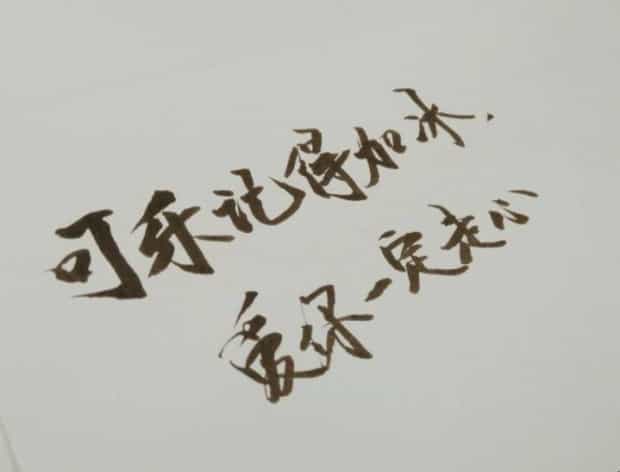 可乐记得加冰.
爱你一定走心